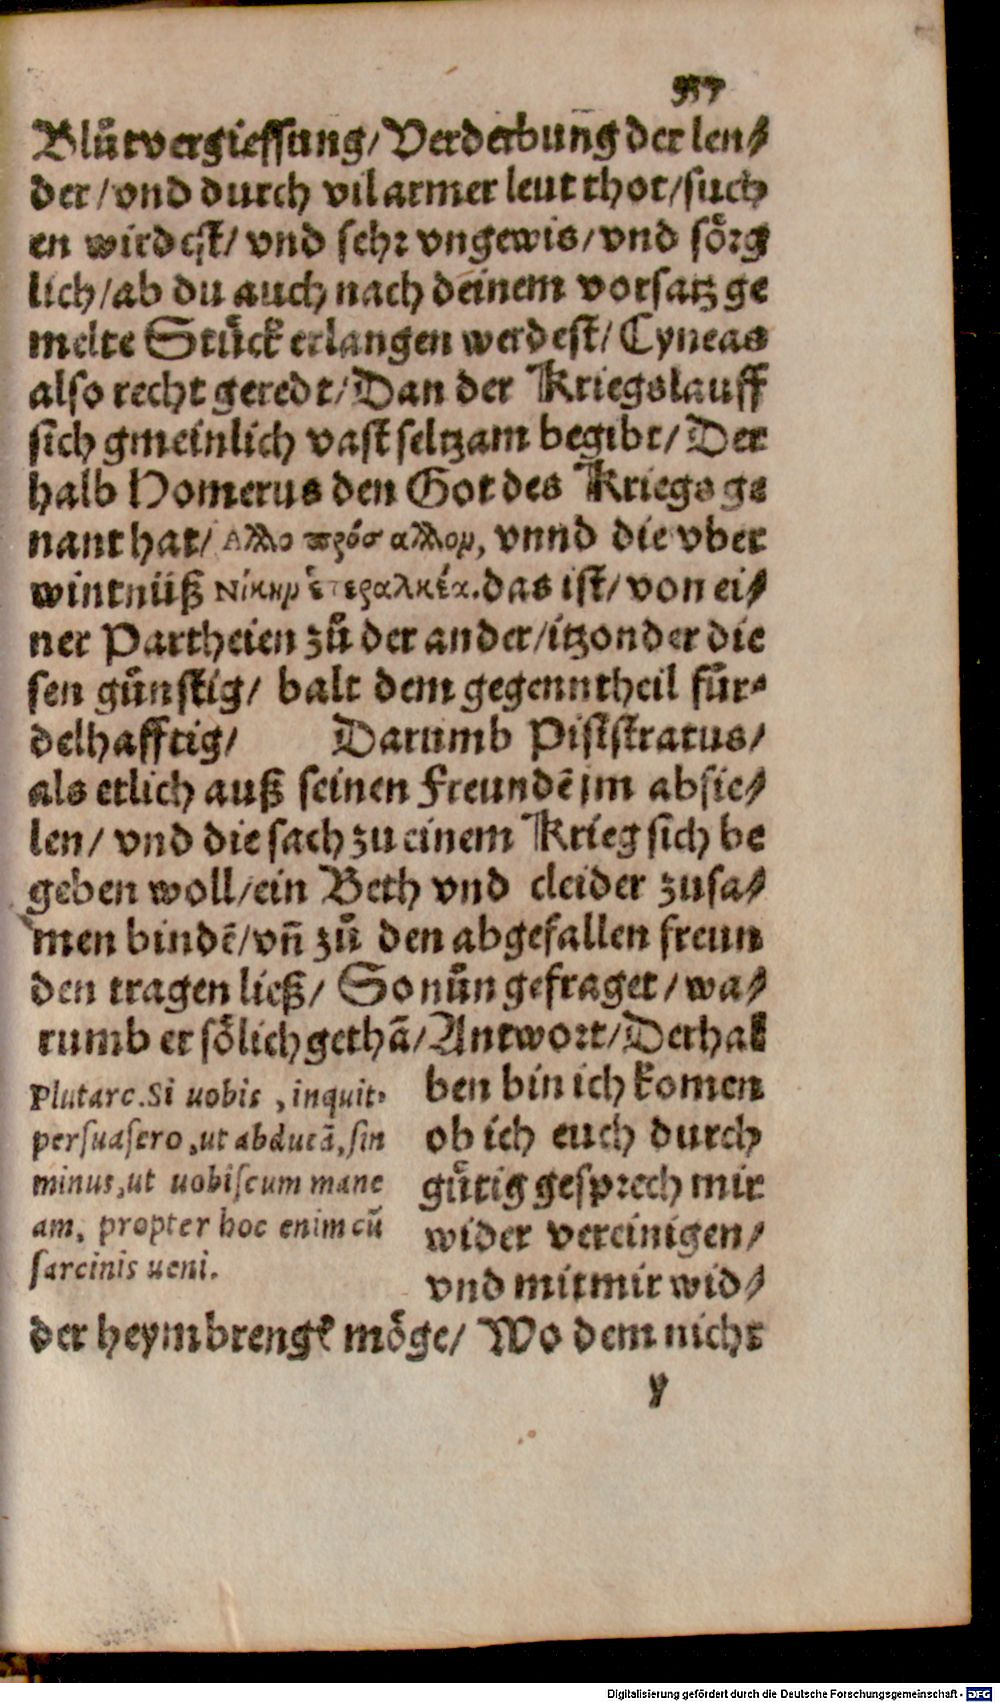 Blůtvergiessung/Verderbung der len/
der/vnd durch vil armer leut thot/such
en wirdest/ vnd sehr vngewis/vnd sörg
lich/ab du auch nach deinem vorsatz ge
melte Stück erlangen werdest/ Cyneas
also recht geredt/Dan der Kriegslauff
sich gmeinlich vast seltzam begibt/ Der
halb Homerus den Got des Kriegs ge
nant hat/ Αλλο πρόσ αλλομ, vnnd die vber
wintnüß Νίκημ ἑτεραλκέα. das ist/ von ei/
ner Partheien zů der ander/itzonder die
sen günstig/ balt dem gegenntheil für-
delhafftig/ Darumb Piststratus/
als etlich auß seinen Freundē jm absie/
len/ vnd die sach zu einem Krieg sich be
geben woll/ein Beth vnd cleider zusa/
men bindē/vn̄ zů den abgefallen freun
den tragen ließ/ So nůn gefraget/wa/
rumb er sölich gethā/Antwort/Derhal
ben bin ich komen
ob ich euch durch
gütig gesprech mir
wider vereinigen/
vnd mit mir wid/
Plutarc. Si uobis, inquit,
persuasero, ut abducā, sin
minus, ut uobiscum mane
am, propter hoc enim cū
sarcinis ueni.
der heymbrengē möge/ Wo dem nicht
y
Digitalisierung gefördert durch die Deutsche Forschungsgemeinschaft - DFG